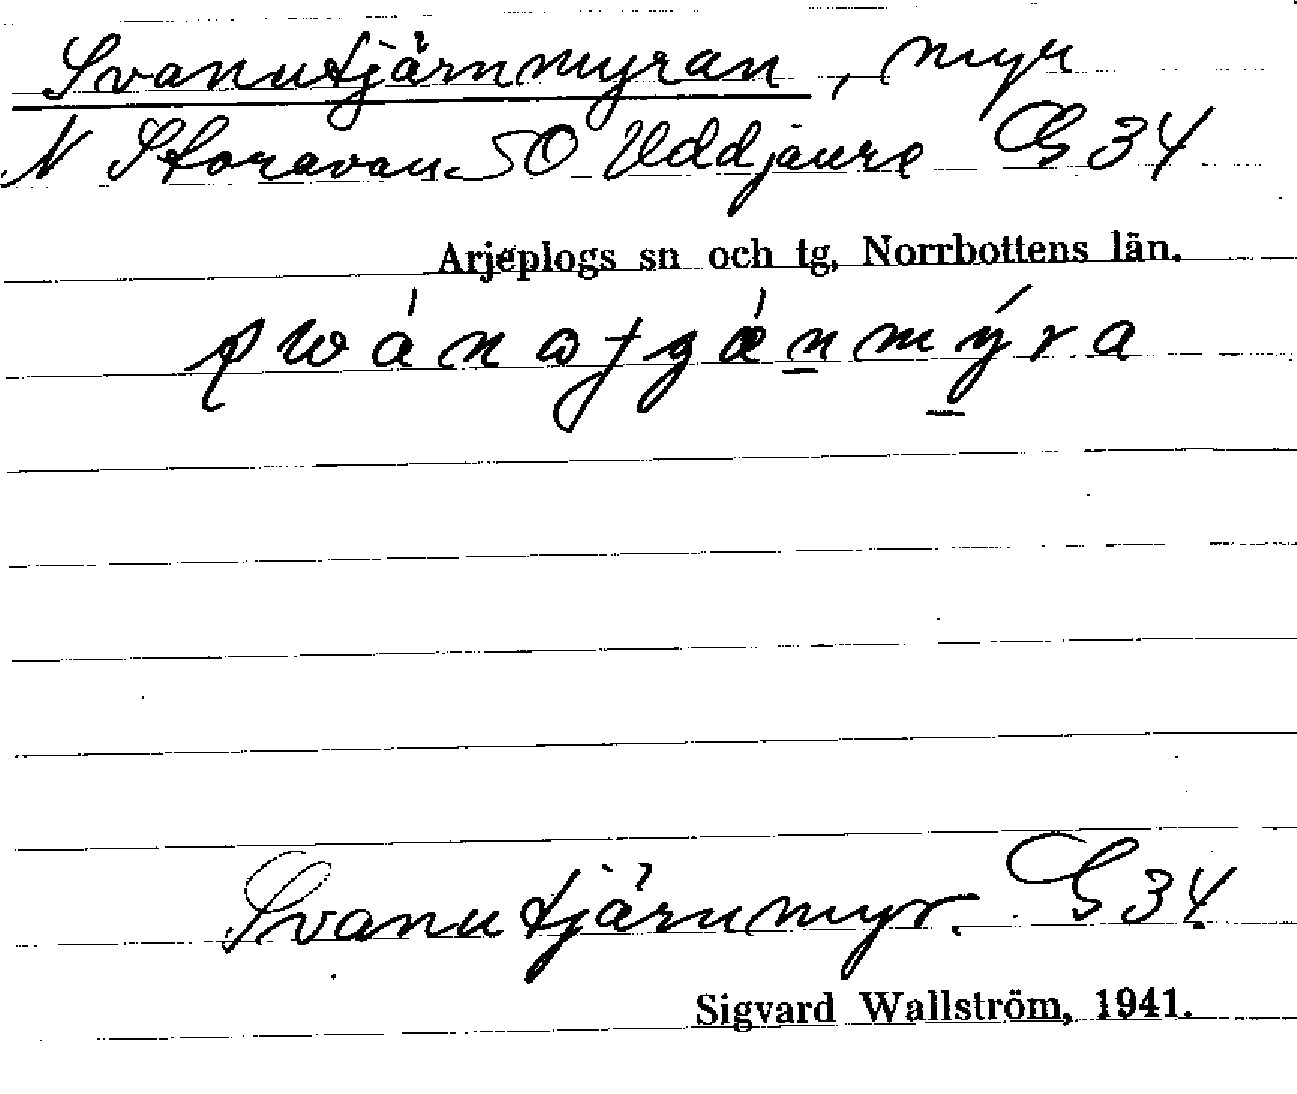 Svanutjärnmyran, myr
N Storavan SO Uddjaure G 34
Arjeplogs sn och tg, Norrbottens län.
Svanutjärnmyr. G 34
Sigvard Wallström, 1941.